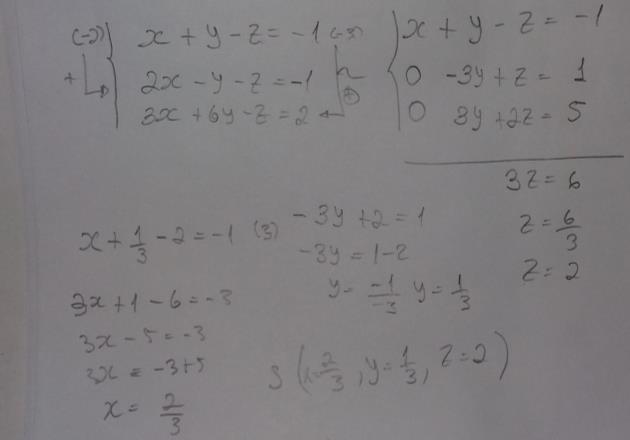 (-2) x + y - z = -1 (-3)
+ 2x - y - z = -1
3x + 6y - z = 2 +
x + y - z = -1
0 -3y + z = 1
0 3y + 2z = 5
3z = 6
z = 6/3
z = 2
-3y + 2 = 1
-3y = 1 - 2
y = -1/-3 y = 1/3
x + 1/3 - 2 = -1 (3)
3x + 1 - 6 = -3
3x - 5 = -3
3x = -3 + 5
x = 2/3
S (x = 2/3, y = 1/3, z = 2)